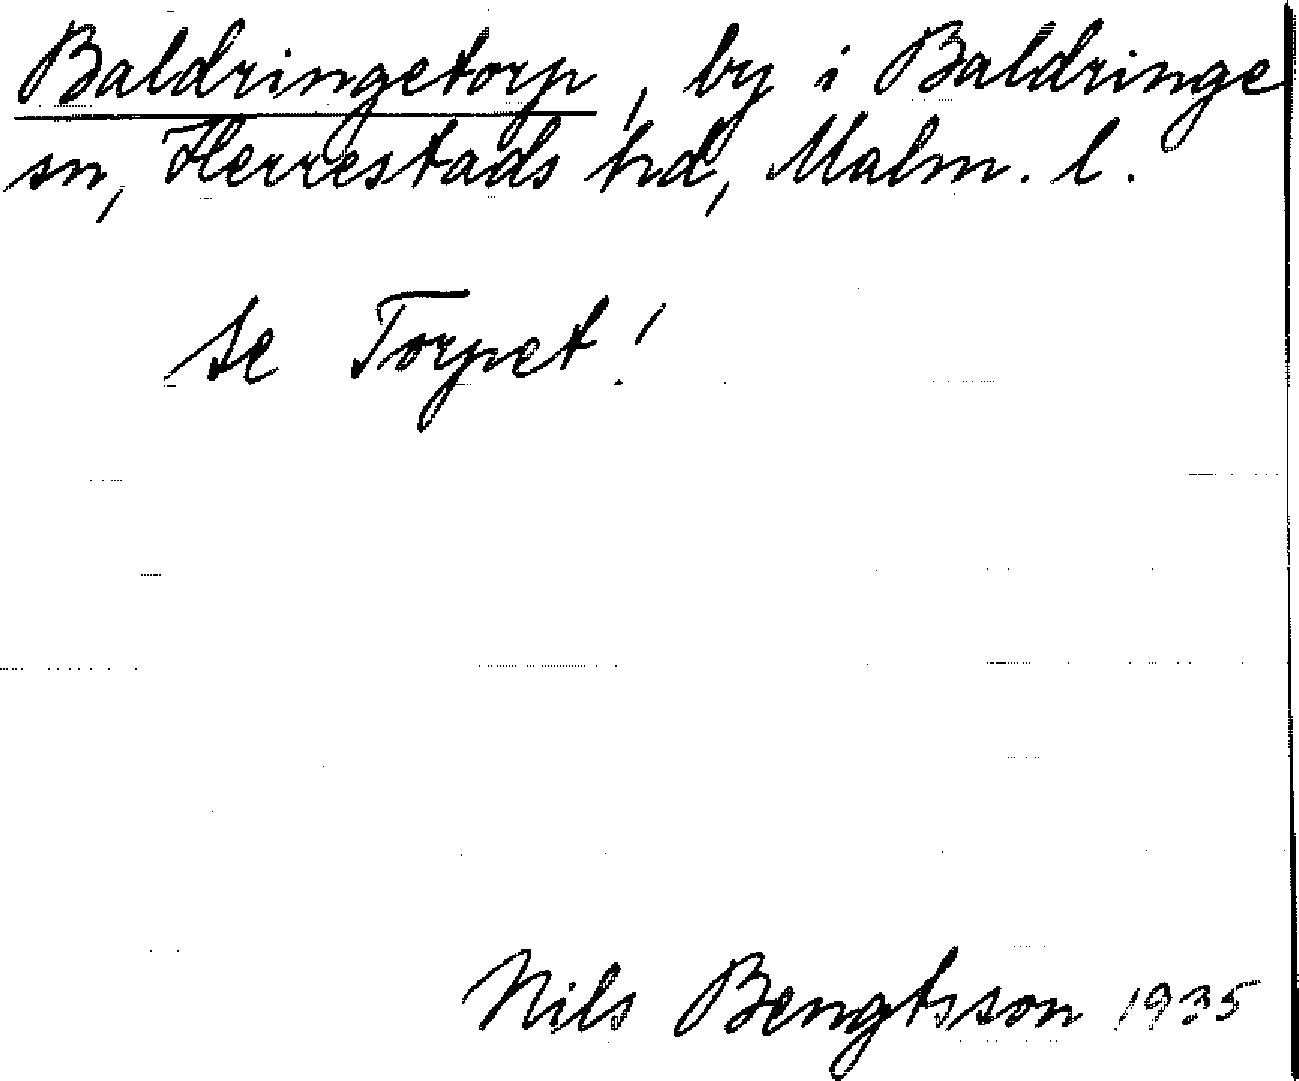 Baldringetorp, by i Baldringe
sn, Herrestads hd, Malm. l.
Se Torpet!
Nils Bengtsson 1935